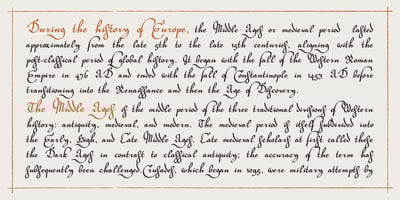 During the history of Europe, the Middle Ages or medieval period lasted
approximately from the late 5th to the late 15th centuries, aligning with the
post-classical period of global history. It began with the fall of the Western Roman
Empire in 476 AD and ended with the fall of Constantinople in 1453 AD before
transitioning into the Renaissance and then the Age of Discovery.
The Middle Ages is the middle period of the three traditional divisions of Western
history: antiquity, medieval, and modern. The medieval period is itself subdivided into
the Early, High, and Late Middle Ages. Late medieval scholars at first called these
the Dark Ages in contrast to classical antiquity; the accuracy of the term has
subsequently been challenged. Crusades, which began in 1095, were military attempts by